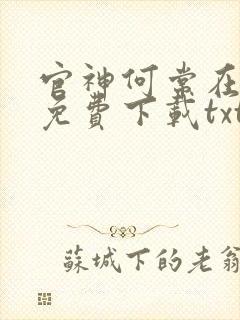 官神何常在
免費下載txt
蘇城下的老翁